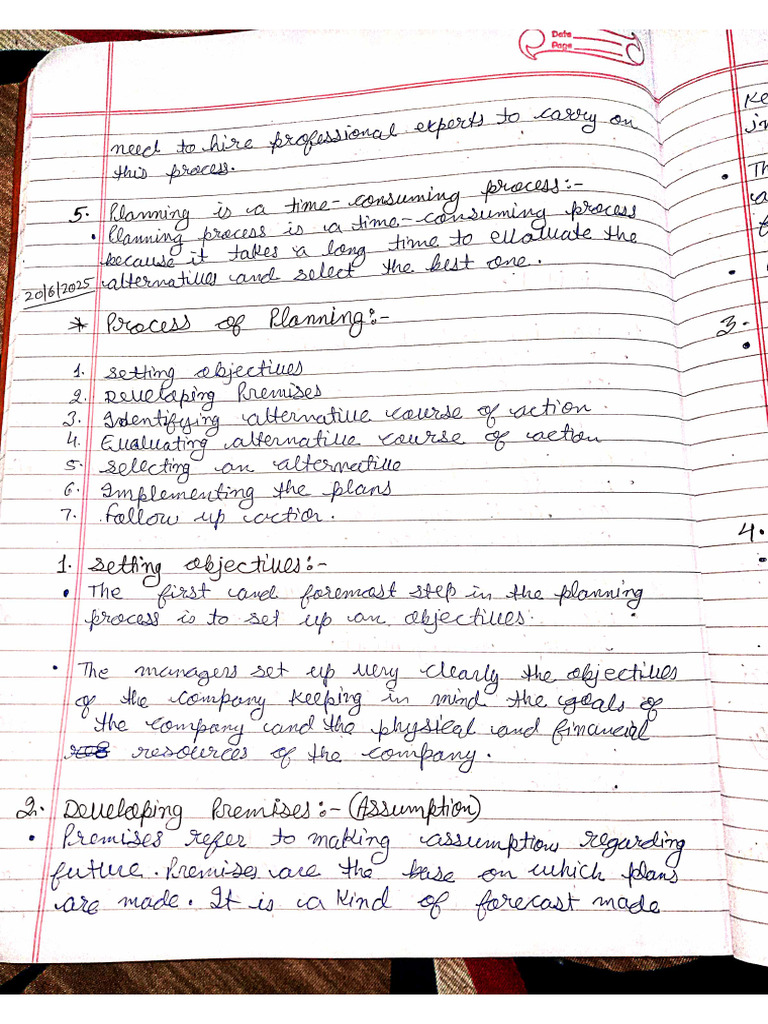 Date
Page
need to hire professional experts to carry on
this process.
5. Planning is a time-consuming process:-
• Planning process is a time-consuming process
because it takes a long time to evaluate the
alternatives and select the best one.
20/6/2025
* Process of Planning:-
1. Setting objectives
2. Developing Premises
3. Identifying alternative course of action.
4. Evaluating alternative course of action
5. Selecting an alternative
6. Implementing the plans
7. Follow up action.
1. Setting objectives:-
• The first and foremost step in the planning
process is to set up an objectives.
• The managers set up very clearly the objectives
of the company keeping in mind the goals of
the company and the physical and financial
resources of the company.
2. Developing Premises:- (Assumption)
• Premises refer to making assumption regarding
future. Premises are the base on which plans
are made. It is a kind of forecast made
Ke
in
• Th
3.
4.